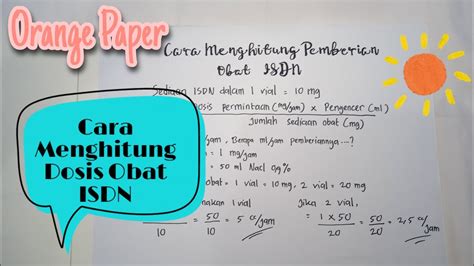 Orange Paper
Cara Menghitung Pemberian
Obat ISDN
Sediaan ISDN dalam 1 vial = 10 mg
dosis permintaan (mg/jam) x Pengencer (ml)
Jumlah sediaan obat (mg)
Cara
Menghitung
Dosis Obat
ISDN
/jam, Berapa ml/jam pemberiannya....?
= 1 mg/jam
= 50 ml Nacl 0,9%
obat = 1 vial = 10 mg, 2 vial = 20 mg
1 vial, Jika 2 vial,
50/10 = 5 cc/jam = 1 x 50 / 20 = 50/20 = 2,5 cc/jam
10